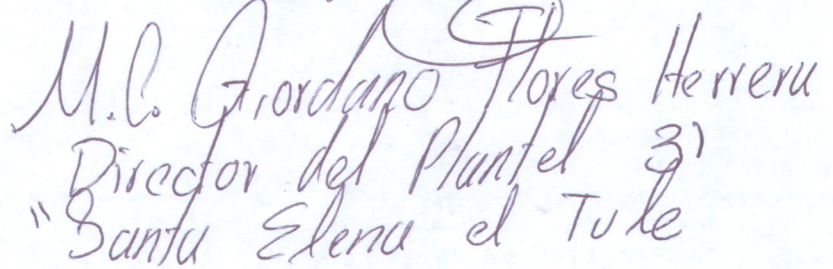 M.C. Giordano Flores Herrera
Director del Plantel 31
"Santa Elena el Tule